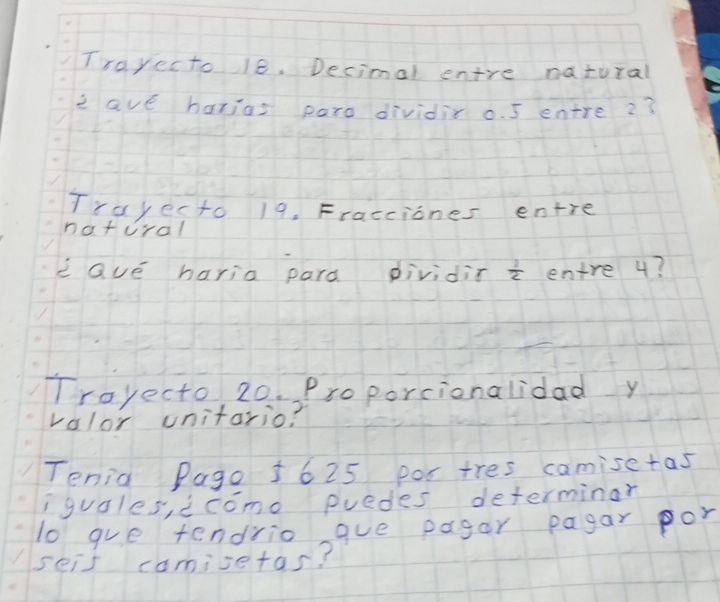 Trayecto 18. Decimal entre natural
¿ qué harías para dividir 0.5 entre 2?
Trayecto 19. Fracciónes entre
natural
¿ qué haria para dividir ½ entre 4?
Trayecto 20. Proporcionalidad y
valor unitario?
Tenia Pago $ 625 por tres camisetas
iguales, ¿cómo puedes determinar
lo que tendrio que pagar pagar por
seis camisetas?